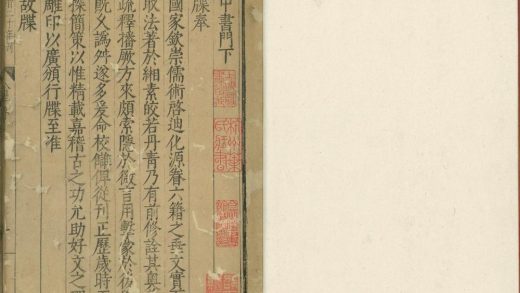 中書門下
牒奉
國家欽崇儒術啓迪化源眷六籍之垂文實
取法著於緗素皎若丹青乃有前修詮其奧
疏釋播厥方來頗索隱於微言用擊象於
既乂譌舛遂多爰命校讎俾從刊正歷歲時
探簡策以惟精載嘉稽古之功允助好文之理
雕印以廣頒行牒至准
故牒